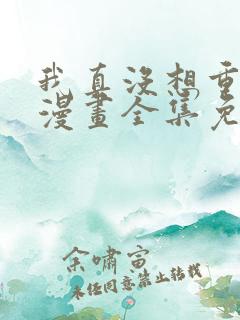 我真没想重
漫畫全集免
余嘯寅
未任同意禁止转载